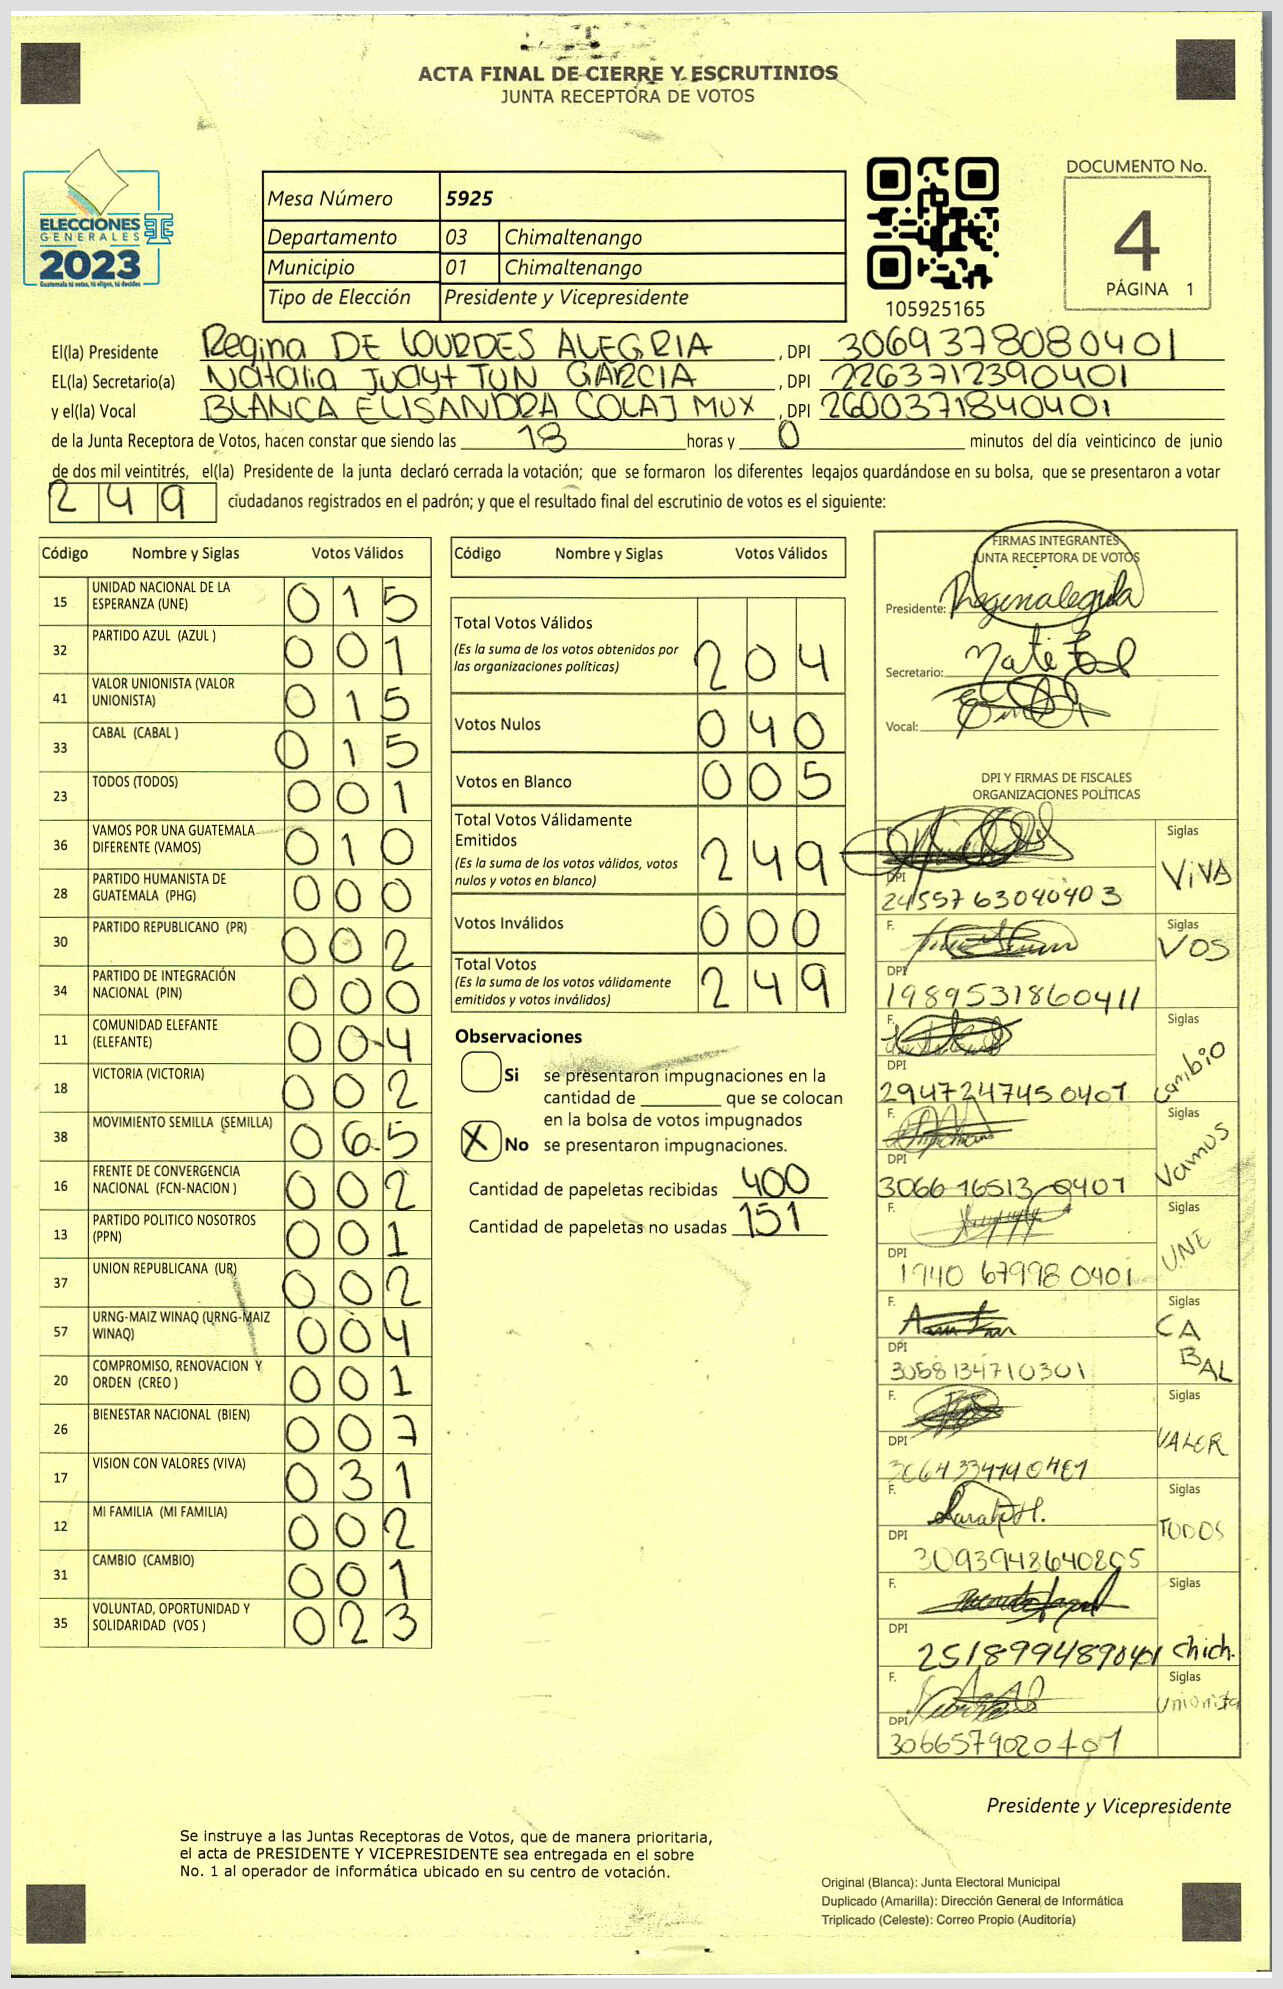 ACTA FINAL DE CIERRE Y ESCRUTINIOS
JUNTA RECEPTORA DE VOTOS
ELECCIONES
GENERALES
2023
Guatemala tú votas, tú eliges, tú decides
Mesa Número 5925
Departamento 03 Chimaltenango
Municipio 01 Chimaltenango
Tipo de Elección Presidente y Vicepresidente
105925165
DOCUMENTO No.
4
PÁGINA 1
El(la) Presidente Regina DE LOURDES ALEGRIA , DPI 3069378080401
EL(la) Secretario(a) Natalia Judyt TUN GARCIA , DPI 2263712390401
y el(la) Vocal BLANCA ELISANDRA COLAJ MUX , DPI 2600371840401
de la Junta Receptora de Votos, hacen constar que siendo las 18 horas y 0 minutos del día veinticinco de junio
de dos mil veintitrés, el(la) Presidente de la junta declaró cerrada la votación; que se formaron los diferentes legajos guardándose en su bolsa, que se presentaron a votar
249 ciudadanos registrados en el padrón; y que el resultado final del escrutinio de votos es el siguiente:
Código Nombre y Siglas Votos Válidos
15 UNIDAD NACIONAL DE LA ESPERANZA (UNE) 015
32 PARTIDO AZUL (AZUL ) 001
41 VALOR UNIONISTA (VALOR UNIONISTA) 015
33 CABAL (CABAL ) 015
23 TODOS (TODOS) 001
36 VAMOS POR UNA GUATEMALA DIFERENTE (VAMOS) 010
28 PARTIDO HUMANISTA DE GUATEMALA (PHG) 000
30 PARTIDO REPUBLICANO (PR) 002
34 PARTIDO DE INTEGRACIÓN NACIONAL (PIN) 000
11 COMUNIDAD ELEFANTE (ELEFANTE) 004
18 VICTORIA (VICTORIA) 002
38 MOVIMIENTO SEMILLA (SEMILLA) 065
16 FRENTE DE CONVERGENCIA NACIONAL (FCN-NACION ) 002
13 PARTIDO POLITICO NOSOTROS (PPN) 001
37 UNION REPUBLICANA (UR) 002
57 URNG-MAIZ WINAQ (URNG-MAIZ WINAQ) 004
20 COMPROMISO, RENOVACION Y ORDEN (CREO ) 001
26 BIENESTAR NACIONAL (BIEN) 007
17 VISION CON VALORES (VIVA) 031
12 MI FAMILIA (MI FAMILIA) 002
31 CAMBIO (CAMBIO) 001
35 VOLUNTAD, OPORTUNIDAD Y SOLIDARIDAD (VOS ) 023
Código Nombre y Siglas Votos Válidos
Total Votos Válidos 204
(Es la suma de los votos obtenidos por
las organizaciones políticas)
Votos Nulos 040
Votos en Blanco 005
Total Votos Válidamente
Emitidos 249
(Es la suma de los votos válidos, votos
nulos y votos en blanco)
Votos Inválidos 000
Total Votos 249
(Es la suma de los votos válidamente
emitidos y votos inválidos)
Observaciones
Si se presentaron impugnaciones en la
cantidad de ________ que se colocan
en la bolsa de votos impugnados
X No se presentaron impugnaciones.
Cantidad de papeletas recibidas 400
Cantidad de papeletas no usadas 151
FIRMAS INTEGRANTES
JUNTA RECEPTORA DE VOTOS
Presidente:
Secretario:
Vocal:
DPI Y FIRMAS DE FISCALES
ORGANIZACIONES POLÍTICAS
Siglas VIVA
DPI 2455763040403
F. Siglas VOS
DPI 1989531860411
F. Siglas cambio
DPI 2947247450401
F. Siglas Vamos
DPI 3066165130401
F. Siglas UNE
DPI 1940679980401
F. Siglas CABAL
DPI 3058134710301
F. Siglas VALER
DPI
F. Siglas TODOS
DPI 3093948640805
F. Siglas chich.
DPI 2518994890401
F. Siglas Unionista
DPI 3066579020401
Presidente y Vicepresidente
Se instruye a las Juntas Receptoras de Votos, que de manera prioritaria,
el acta de PRESIDENTE Y VICEPRESIDENTE sea entregada en el sobre
No. 1 al operador de informática ubicado en su centro de votación.
Original (Blanca): Junta Electoral Municipal
Duplicado (Amarilla): Dirección General de Informática
Triplicado (Celeste): Correo Propio (Auditoría)